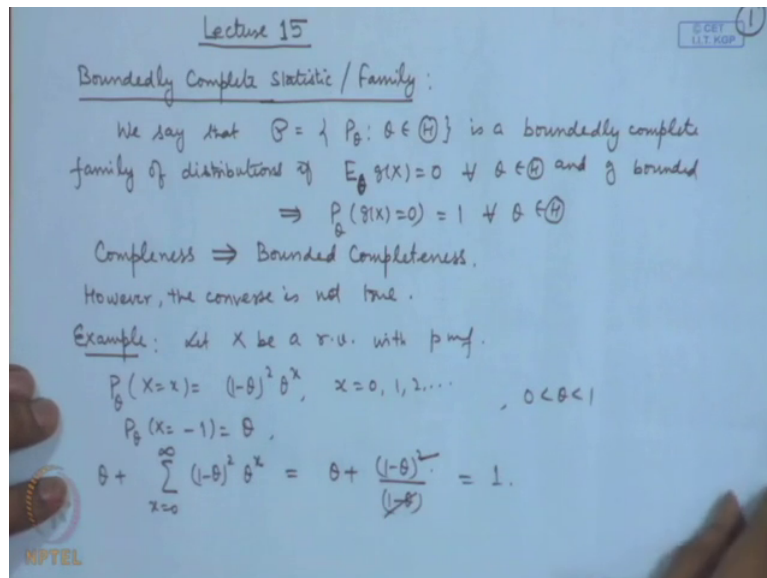 Lecture 15
①
© CET
I.I.T. KGP
Boundedly Complete Statistic / Family :
We say that 𝒫 = { P_θ : θ ∈ Θ } is a boundedly complete
family of distributions if E_θ g(X) = 0 ∀ θ ∈ Θ and g bounded
⇒ P_θ (g(X) = 0) = 1 ∀ θ ∈ Θ
Compleness ⇒ Bounded Completeness.
However, the converse is not true.
Example : Let X be a r.v. with pmf.
P_θ (X = x) = (1-θ)² θ^x, x = 0, 1, 2, ... , 0 < θ < 1
P_θ (X = -1) = θ,
θ + ∑_{x=0}^{∞} (1-θ)² θ^x = θ + (1-θ)²/(1-θ) = 1.
NPTEL